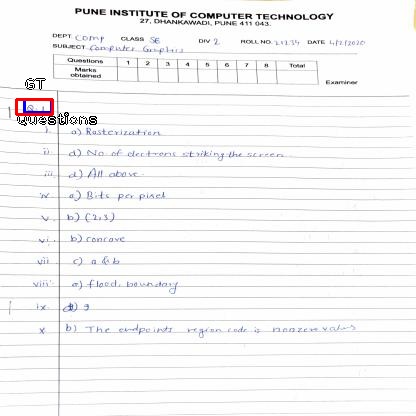 PUNE INSTITUTE OF COMPUTER TECHNOLOGY
27, DHANKAWADI, PUNE 411 043.
DEPT Comp CLASS SE DIV 2 ROLL NO. DATE 4/2/2020
SUBJECT Computer Graphics
Questions 1 2 3 4 5 6 7 8 Total
Marks obtained
Examiner
GT
Q.1
Questions
i. a) Rasterization
ii. d) No. of electrons striking the screen
iii. d) All above.
iv. a) Bits per pixel
v. b) (2,3)
vi. b) concave
vii c) a & b
viii. a) flood, boundary
ix. 9
x b) The endpoints region code is nonzero values